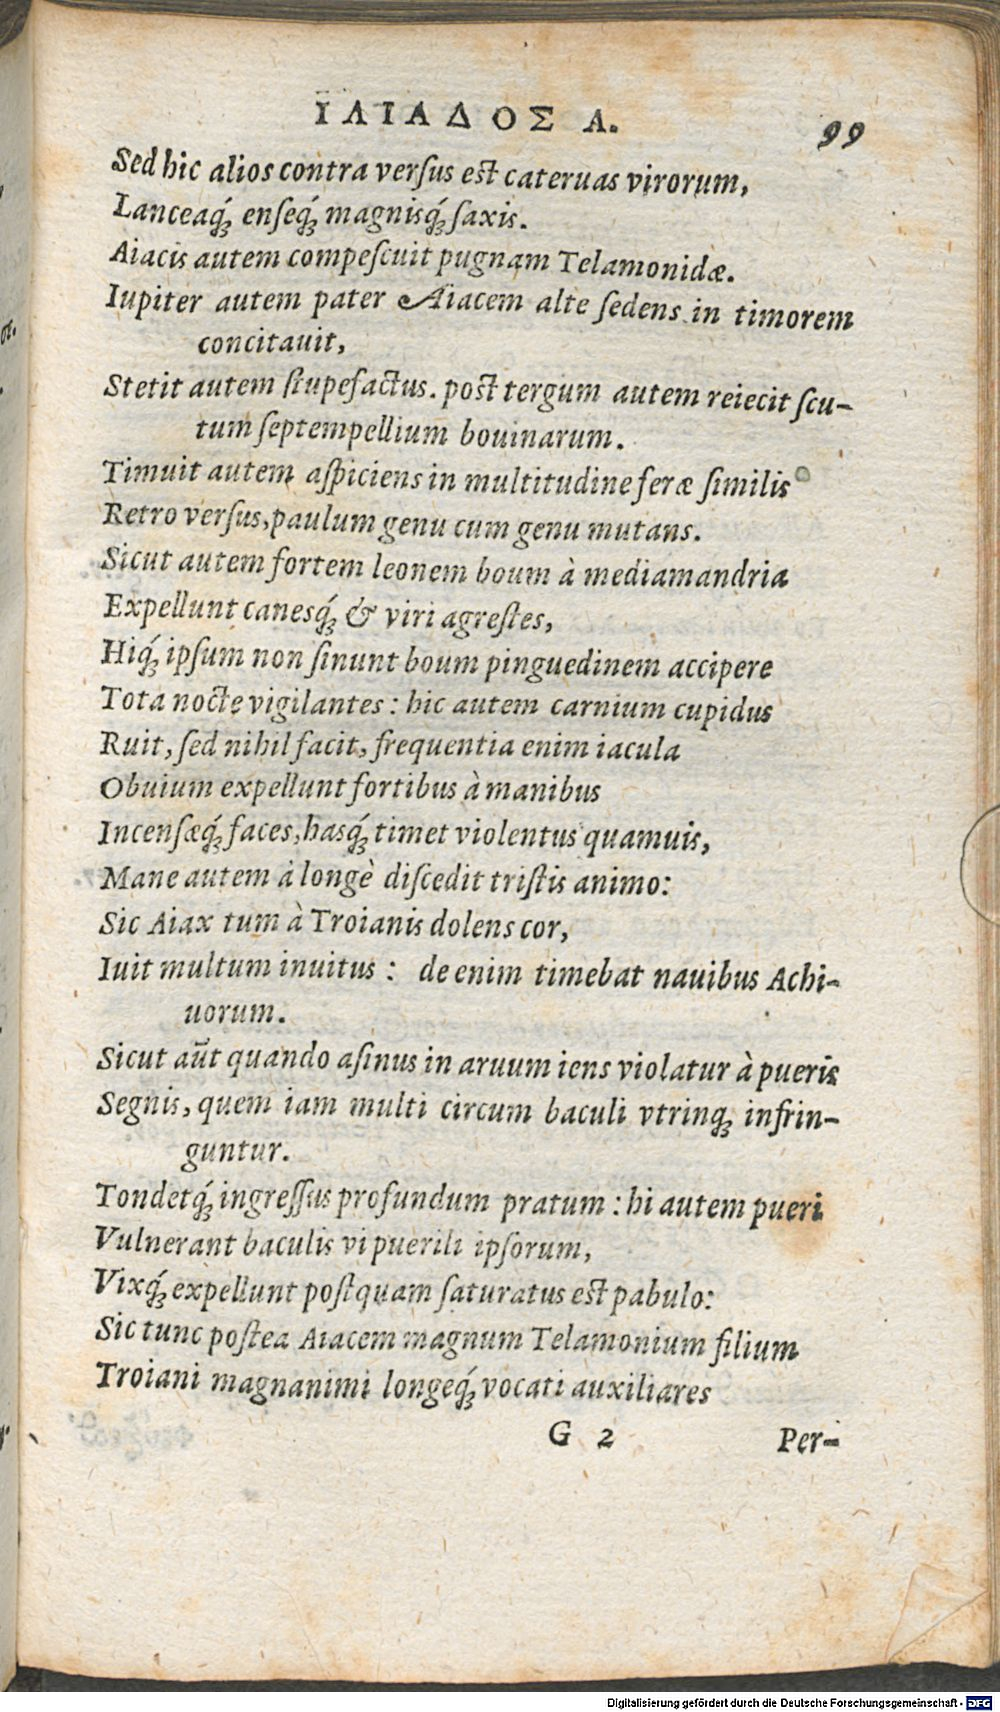 ΙΛΙΑΔΟΣ Λ.
99
Sed hic alios contra versus est cateruas virorum,
Lanceaq́; enseq́; magnisq́; saxis.
Aiacis autem compescuit pugnam Telamonidæ.
Iupiter autem pater Aiacem alte sedens in timorem
concitauit,
Stetit autem stupefactus. post tergum autem reiecit scu-
tum septempellium bouinarum.
Timuit autem aspiciens in multitudine feræ similis
Retro versus, paulum genu cum genu mutans.
Sicut autem fortem leonem boum à media mandria
Expellunt canesq́; & viri agrestes,
Hiq́; ipsum non sinunt boum pinguedinem accipere
Tota nocte vigilantes: hic autem carnium cupidus
Ruit, sed nihil facit, frequentia enim iacula
Obuium expellunt fortibus à manibus
Incensæq́; faces, hasq́; timet violentus quamuis,
Mane autem à longè discedit tristis animo:
Sic Aiax tum à Troianis dolens cor,
Iuit multum inuitus: de enim timebat nauibus Achi-
uorum.
Sicut aūt quando asinus in aruum iens violatur à pueris
Segnis, quem iam multi circum baculi vtrinq; infrin-
guntur.
Tondetq́; ingressus profundum pratum: hi autem pueri
Vulnerant baculis vi puerili ipsorum,
Vixq́; expellunt postquam saturatus est pabulo:
Sic tunc postea Aiacem magnum Telamonium filium
Troiani magnanimi longeq́; vocati auxiliares
G 2
Per-
Digitalisierung gefördert durch die Deutsche Forschungsgemeinschaft - DFG